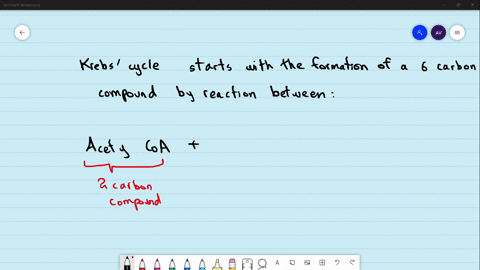 Krebs' cycle starts with the formation of a 6 carbon
compound by reaction between:
Acety CoA +
2 carbon
compound
AV
A